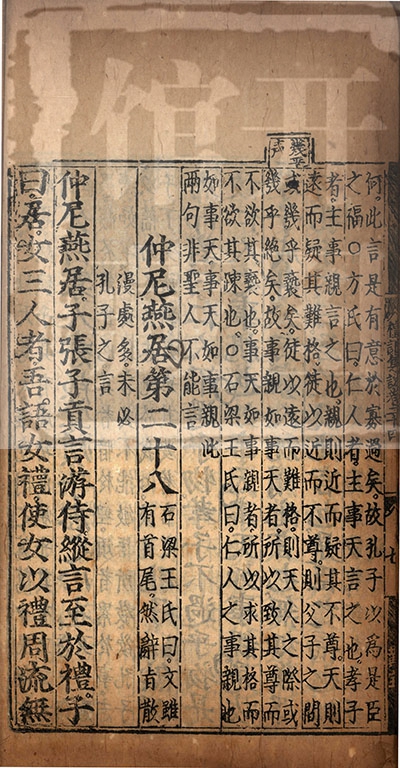 幾平声
何。此言是有意於寡過矣。故孔子以爲是臣
之福。○方氏曰。仁人者。主事天言之也。孝子
者。主事親言之也。親則近而疑其不尊。天則
遠而疑其難格。徒以近而不尊。則父子之間
或幾乎褻矣。徒以遠而難格。則天人之際或
幾乎絶矣。故事親如事天者。所以致其尊而
不欲其褻也。事天如事親者。所以求其格而
不欲其踈也。○石梁王氏曰。仁人之事親也
如事天。事天如事親。此
兩句非聖人不能言
仲尼燕居第二十八
石梁王氏曰。文雖
有首尾。然辭旨散
漫處多。未必
孔子之言
仲尼燕居。子張子貢言游侍。縱言至於禮。子
曰。居。女三人者。吾語女禮。使女以禮周流無